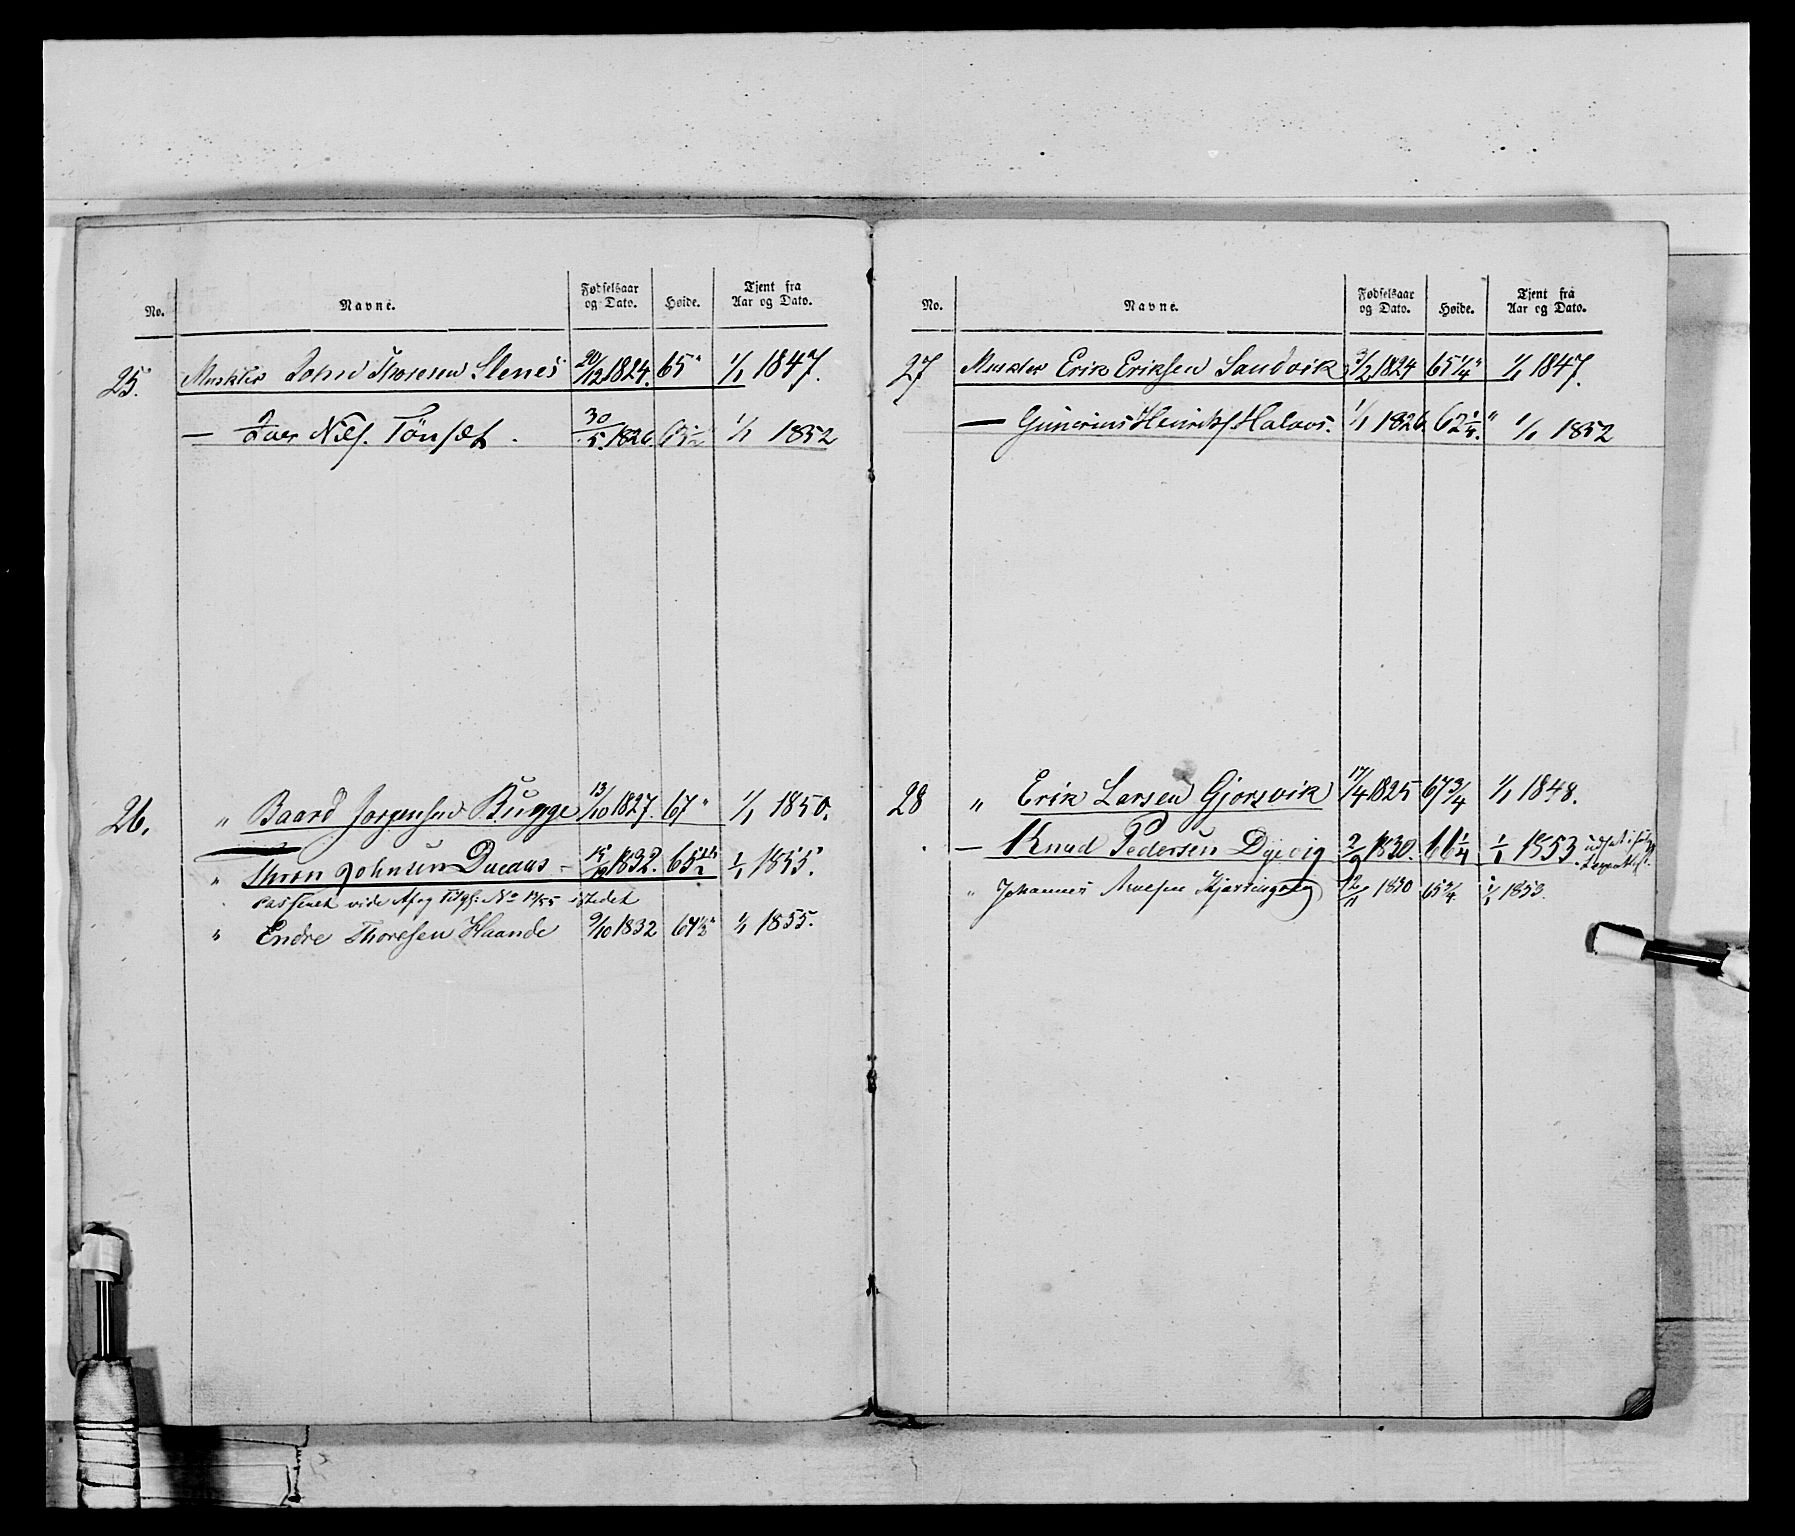 No. Navne. Fødselsaar og Dato. Høide. Tjent fra Aar og Dato.
25. Muskter John Thoresen Stenes 20/12 1824. 65" 1/1 1847.
— Iver Nils. Tønset. 30/5. 1826. 65 1/2 1/1 1852
26. " Baard Jørgensen Bugge 13/10 1827. 67" 1/1 1850.
" Thron Johnsen 15/10 1832. 65 1/1 1855.
Passeret vide Afg. No 14/55 istedet
" Endre Thoresen Haande 9/10 1832 67 1/2" 1/1 1855.
No. Navne. Fødselsaar og Dato. Høide. Tjent fra Aar og Dato.
27 Muskter Erik Eriksen Sandvik 3/2 1824 65 1/4" 1/1 1847.
— Gunerius Henriks. Halaas. 1/1 1826. 62 1/4." 1/1 1852
28 " Erik Larsen Gjorsvik 17/4 1825 67 3/4 1/1 1848.
— Knud Pedersen Dyevig 2/9 1830. 66 1/4 1/1 1853.
" Johannes Arnesen 12/11 1830 65 3/4 1/1 1853.